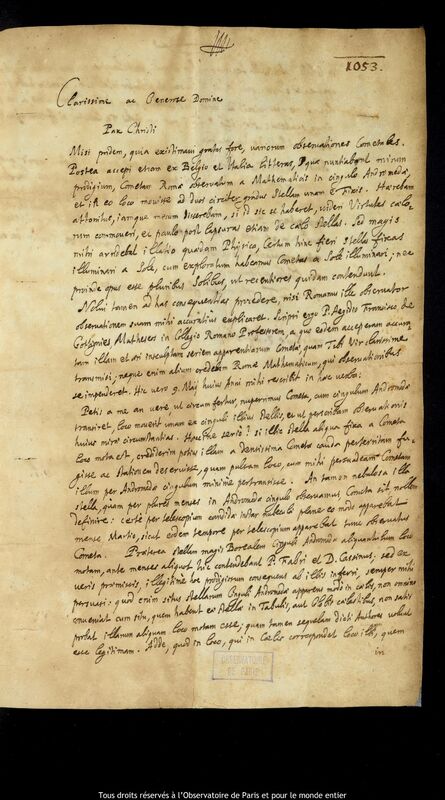 1053.
Clarissime ac Generose Domine
Pax Christi
Misi pridem, quia existimavi gratas fore, variorum observationes Cometales.
Postea accepi etiam ex Belgio et Italia litteras, quæ nuntiabant mirum
prodigium, Cometam Romæ observatum a Mathematicis in cingulo Andromedæ,
et illic eo loco movisse ad duos circiter gradus stellam unam e Fixis. Hærebam
attonitus, iamque mecum discurrebam, si id sic se haberet, videri Virtutes cælo-
rum commoveri, et paulo post lapsuras etiam de cælo stellas. Sed magis
mihi arridebat illatio quædam Physica, certum hinc fieri stellas fixas
illuminari a Sole, cum exploratum habeamus Cometas a Sole illuminari, nec
proinde opus esse pluribus Solibus, ut recentiores quidam contendunt.
Nolui tamen ad has consequentias procedere, nisi Romanus ille observator
observationem suam mihi accuratius explicaret. Scripsi ergo P. Ægidio Francisco de
Gottignies Matheseos in Collegio Romano Professorem, a quo eidem acceperam accura-
tam illam et æri insculptam seriem apparentiarum Cometæ, quam Tibi Vir clarissime
transmisi, neque enim alium credebam Romæ Mathematicum, qui observationibus
se impenderet. Hic vero 9. Maij huius Anni mihi rescribit in hæc verba:
Petis a me an vere, ut circum fertur, nuperrimus Cometa, cum cingulum Andromedæ
transiret, loco moverit unam ex cinguli illius stellis, et ut perscribam observationis
huius miræ circumstantias. Hoccine serio? si illic stella aliqua fixa a Cometa
loco mota est, crediderim potius illam a dentissima Cometæ cauda perterritam fu-
gisse ac stationem deseruisse, quam pulsam loco, cum mihi persuadeam Cometam
illum per Andromedæ cingulum minime pertransisse. An tamen nebulosa illa
stella, quam per plures menses in Andromedæ cingulo observamus Cometa sit nollem
definire: certe per telescopium candidæ instar nubeculæ plane eo modo apparebat
mense Martio, sicut eodem tempore per telescopium apparebat tunc observatus
Cometa. Præterea stellam magis Borealem Cinguli Andromedæ aliquantulum loco
motam, ante menses aliquot hic contendebant P. Fabri et D. Cassinus. sed ex
veris præmissis, illegitime hoc prodigiosum consequens ab illis inferri, semper mihi
persuasi: quod enim situs stellarum Cinguli Andromedæ apparens modo in cælis, non omnino
conveniat cum situ, quem habent eæ stellæ in Tabulis, aut Globis cælestibus, non satis
probat illarum aliquam loco motam esse; quam tamen sequelam dicti Authores volunt
esse legitimam. Adde, quod in loco, qui in Cælis correspondet loco illi, quem
in
OBSERVATOIRE
DE PARIS
Tous droits réservés à l'Observatoire de Paris et pour le monde entier